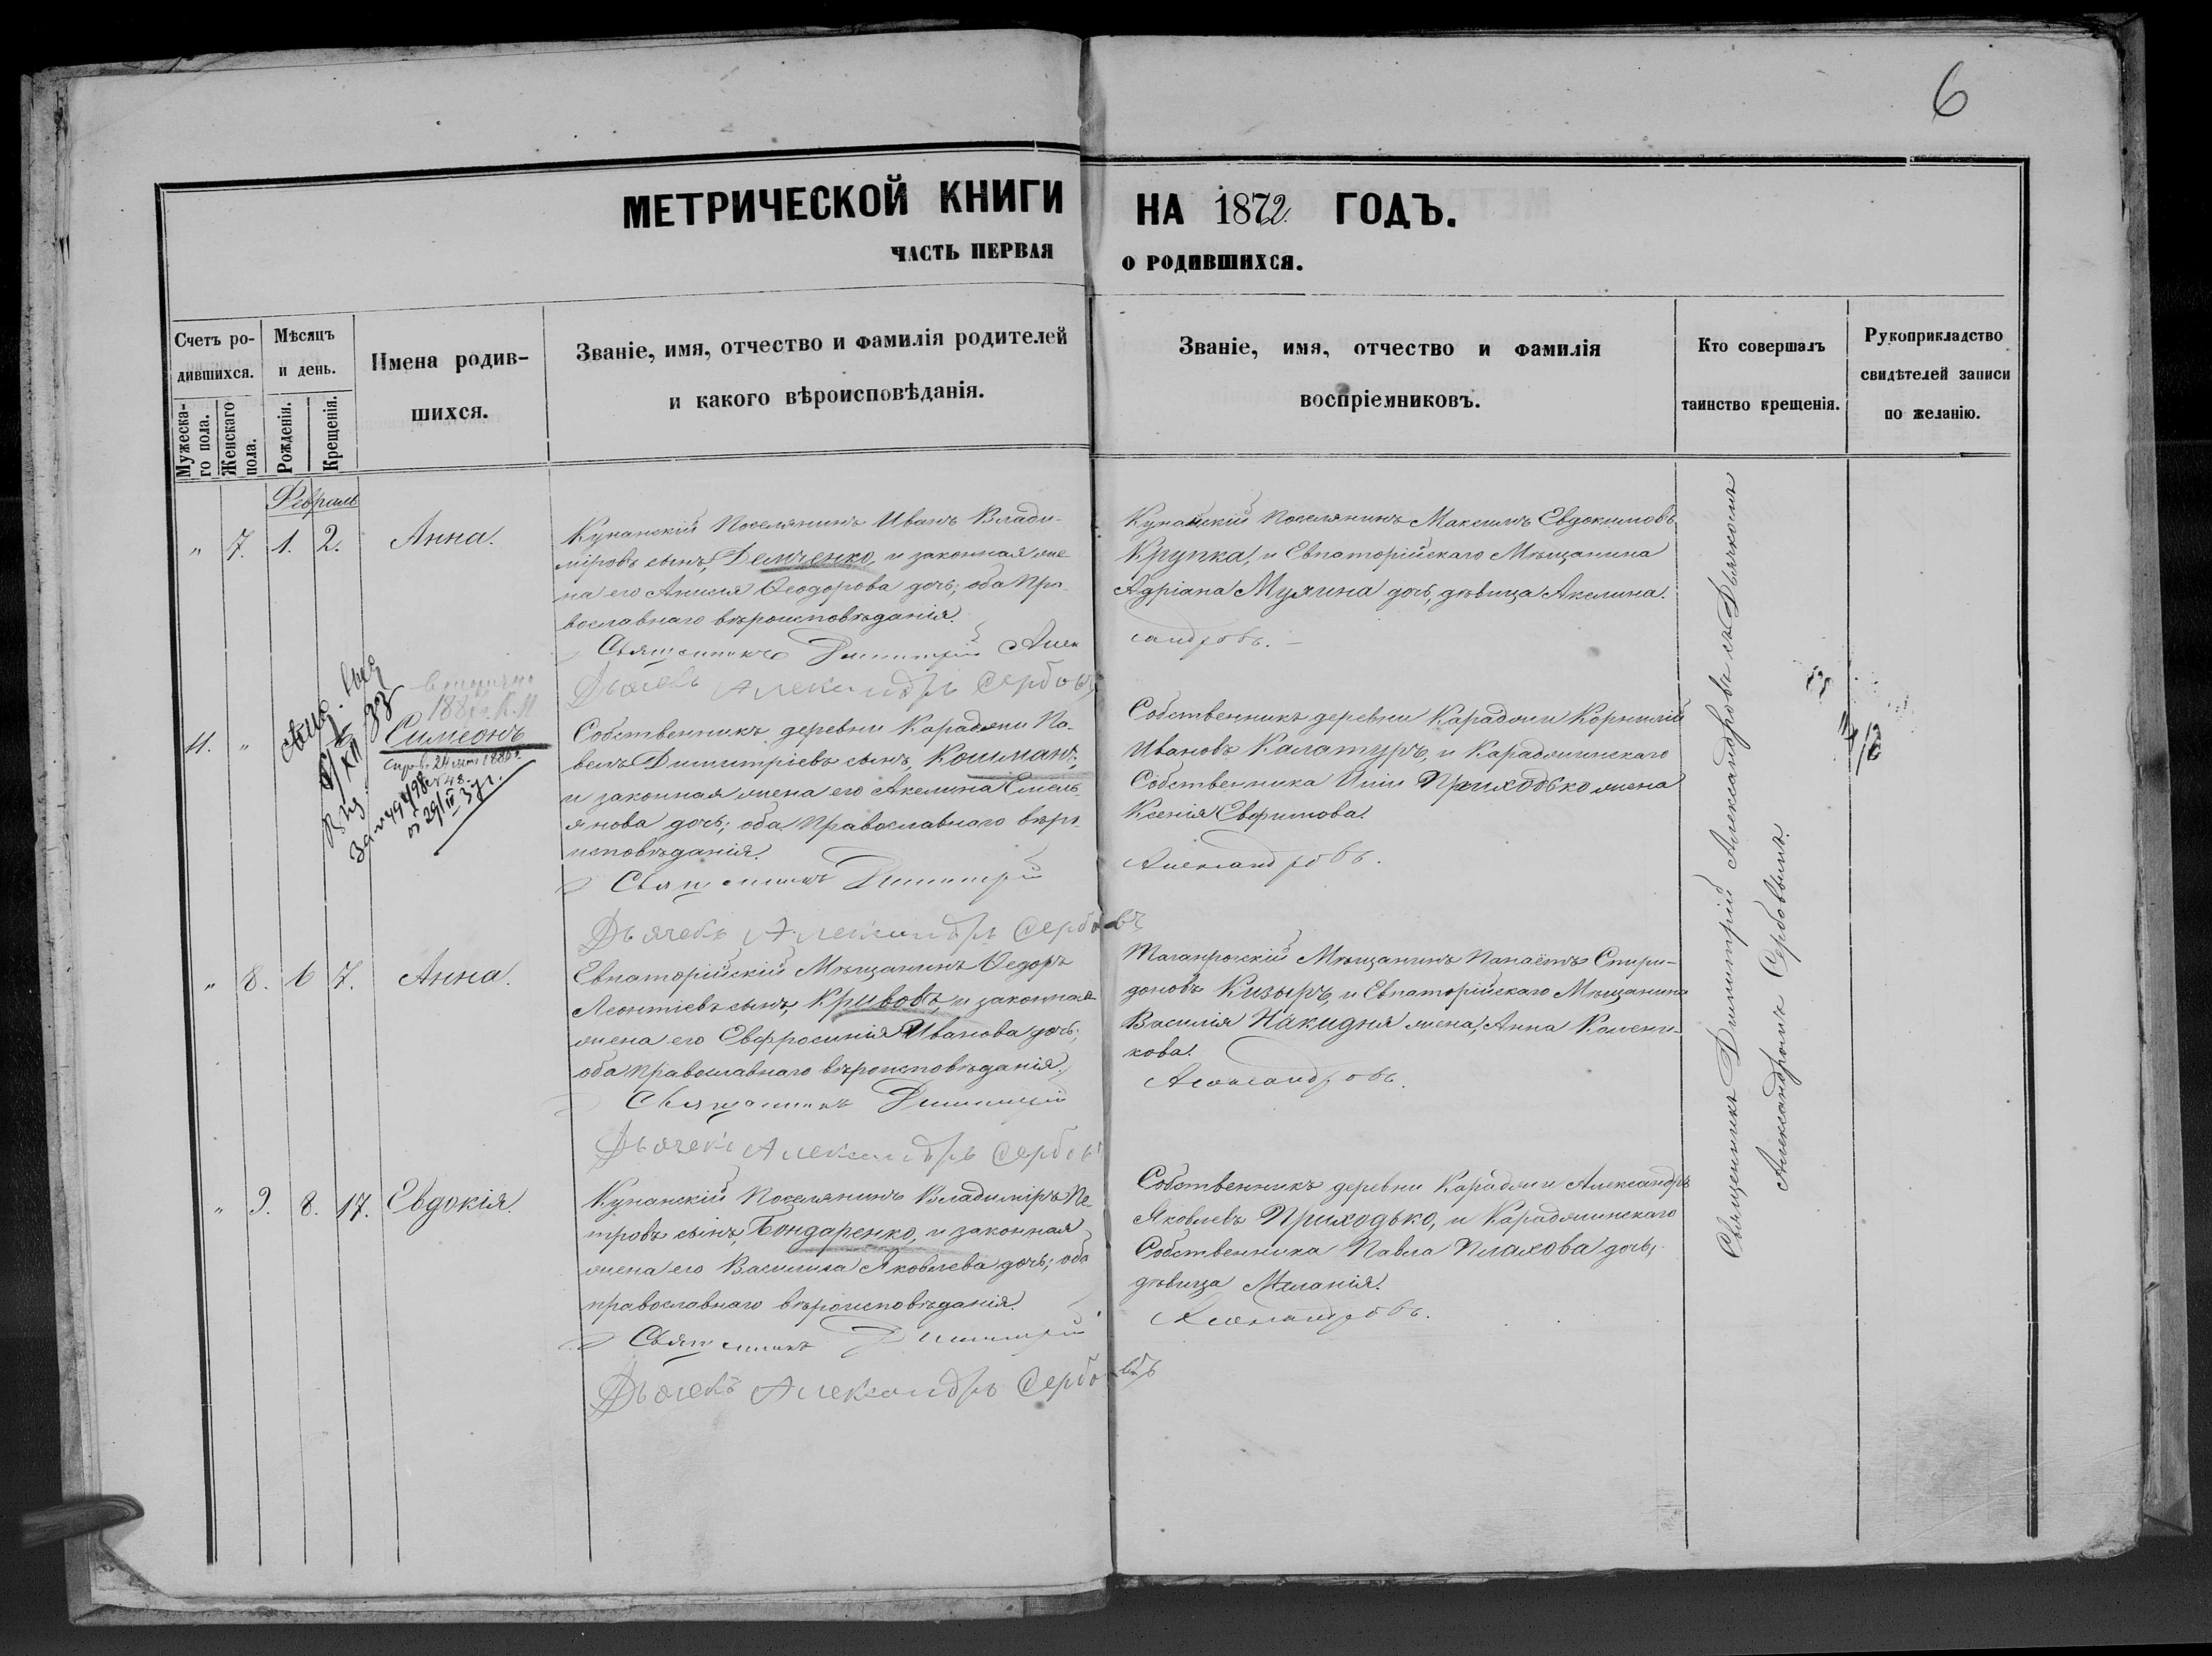 6
МЕТРИЧЕСКОЙ КНИГИ НА 1872 ГОДЪ.
ЧАСТЬ ПЕРВАЯ О РОДИВШИХСЯ.
Счетъ ро-
дившихся.
Мужеска-
го пола.
Женскаго
пола.
Мѣсяцъ
и день.
Рожденія.
Крещенія.
Имена родив-
шихся.
Званіе, имя, отчество и фамилія родителей
и какого вѣроисповѣданія.
Званіе, имя, отчество и фамилія
воспріемниковъ.
Кто совершалъ
таинство крещенія.
Рукоприкладство
свидѣтелей записи
по желанію.
Февраль
" 7. 1. 2. Анна.
Кунанскій Поселянинъ Иванъ Влади-
міровъ сынъ, Демченко, и законная же
на его Анисія Ѳеодорова дочь; оба Пра
вославнаго вѣроисповѣданія.
Священникъ Димитрій Алек
сандровъ.
Дьячекъ Александръ Сербовъ
Кунанскій Поселянинъ Максимъ Евдокимовъ
Крупка, и Евпаторійскаго Мѣщанина
Адріана Мулина дочь, дѣвица Акелина.
4. "
Симеонъ
Собственникъ деревни Караджи Па-
велъ Димитріевъ сынъ, Кошманъ,
и законная жена его Акелина Емель-
янова дочь; оба Православнаго вѣро
исповѣданія.
Священникъ Димитрій
Александровъ.
Дьячекъ Александръ Сербовъ
Собственникъ деревни Караджи Корнилій
Ивановъ Калатуръ, и Караджинскаго
Собственника Приходько жена
Ксенія Евфимова.
" 8. 6 7. Анна.
Евпаторійскій Мѣщанинъ Ѳедоръ
Леонтіевъ сынъ, Кривовъ, и законная
жена его Евфросинія Иванова дочь;
оба Православнаго вѣроисповѣданія.
Священникъ Димитрій
Александровъ.
Дьячекъ Александръ Сербовъ
Таганрогскій Мѣщанинъ Спири-
доновъ Кизыръ, и Евпаторійскаго Мѣщанина
Василія Накидня жена, Анна
кова.
" 9. 8. 17. Евдокія.
Кунанскій Поселянинъ Владиміръ Пе-
тровъ сынъ, Бондаренко, и законная
жена его Василиса Яковлева дочь; оба
православнаго вѣроисповѣданія.
Священникъ Димитрій
Александровъ.
Дьячекъ Александръ Сербовъ
Собственникъ деревни Караджи Александръ
Яковлевъ Приходько, и Караджинскаго
Собственника Павла Плахова дочь,
дѣвица Меланія.
Священникъ Димитрій Александровъ съ Дьячкомъ
Александромъ Сербовымъ.